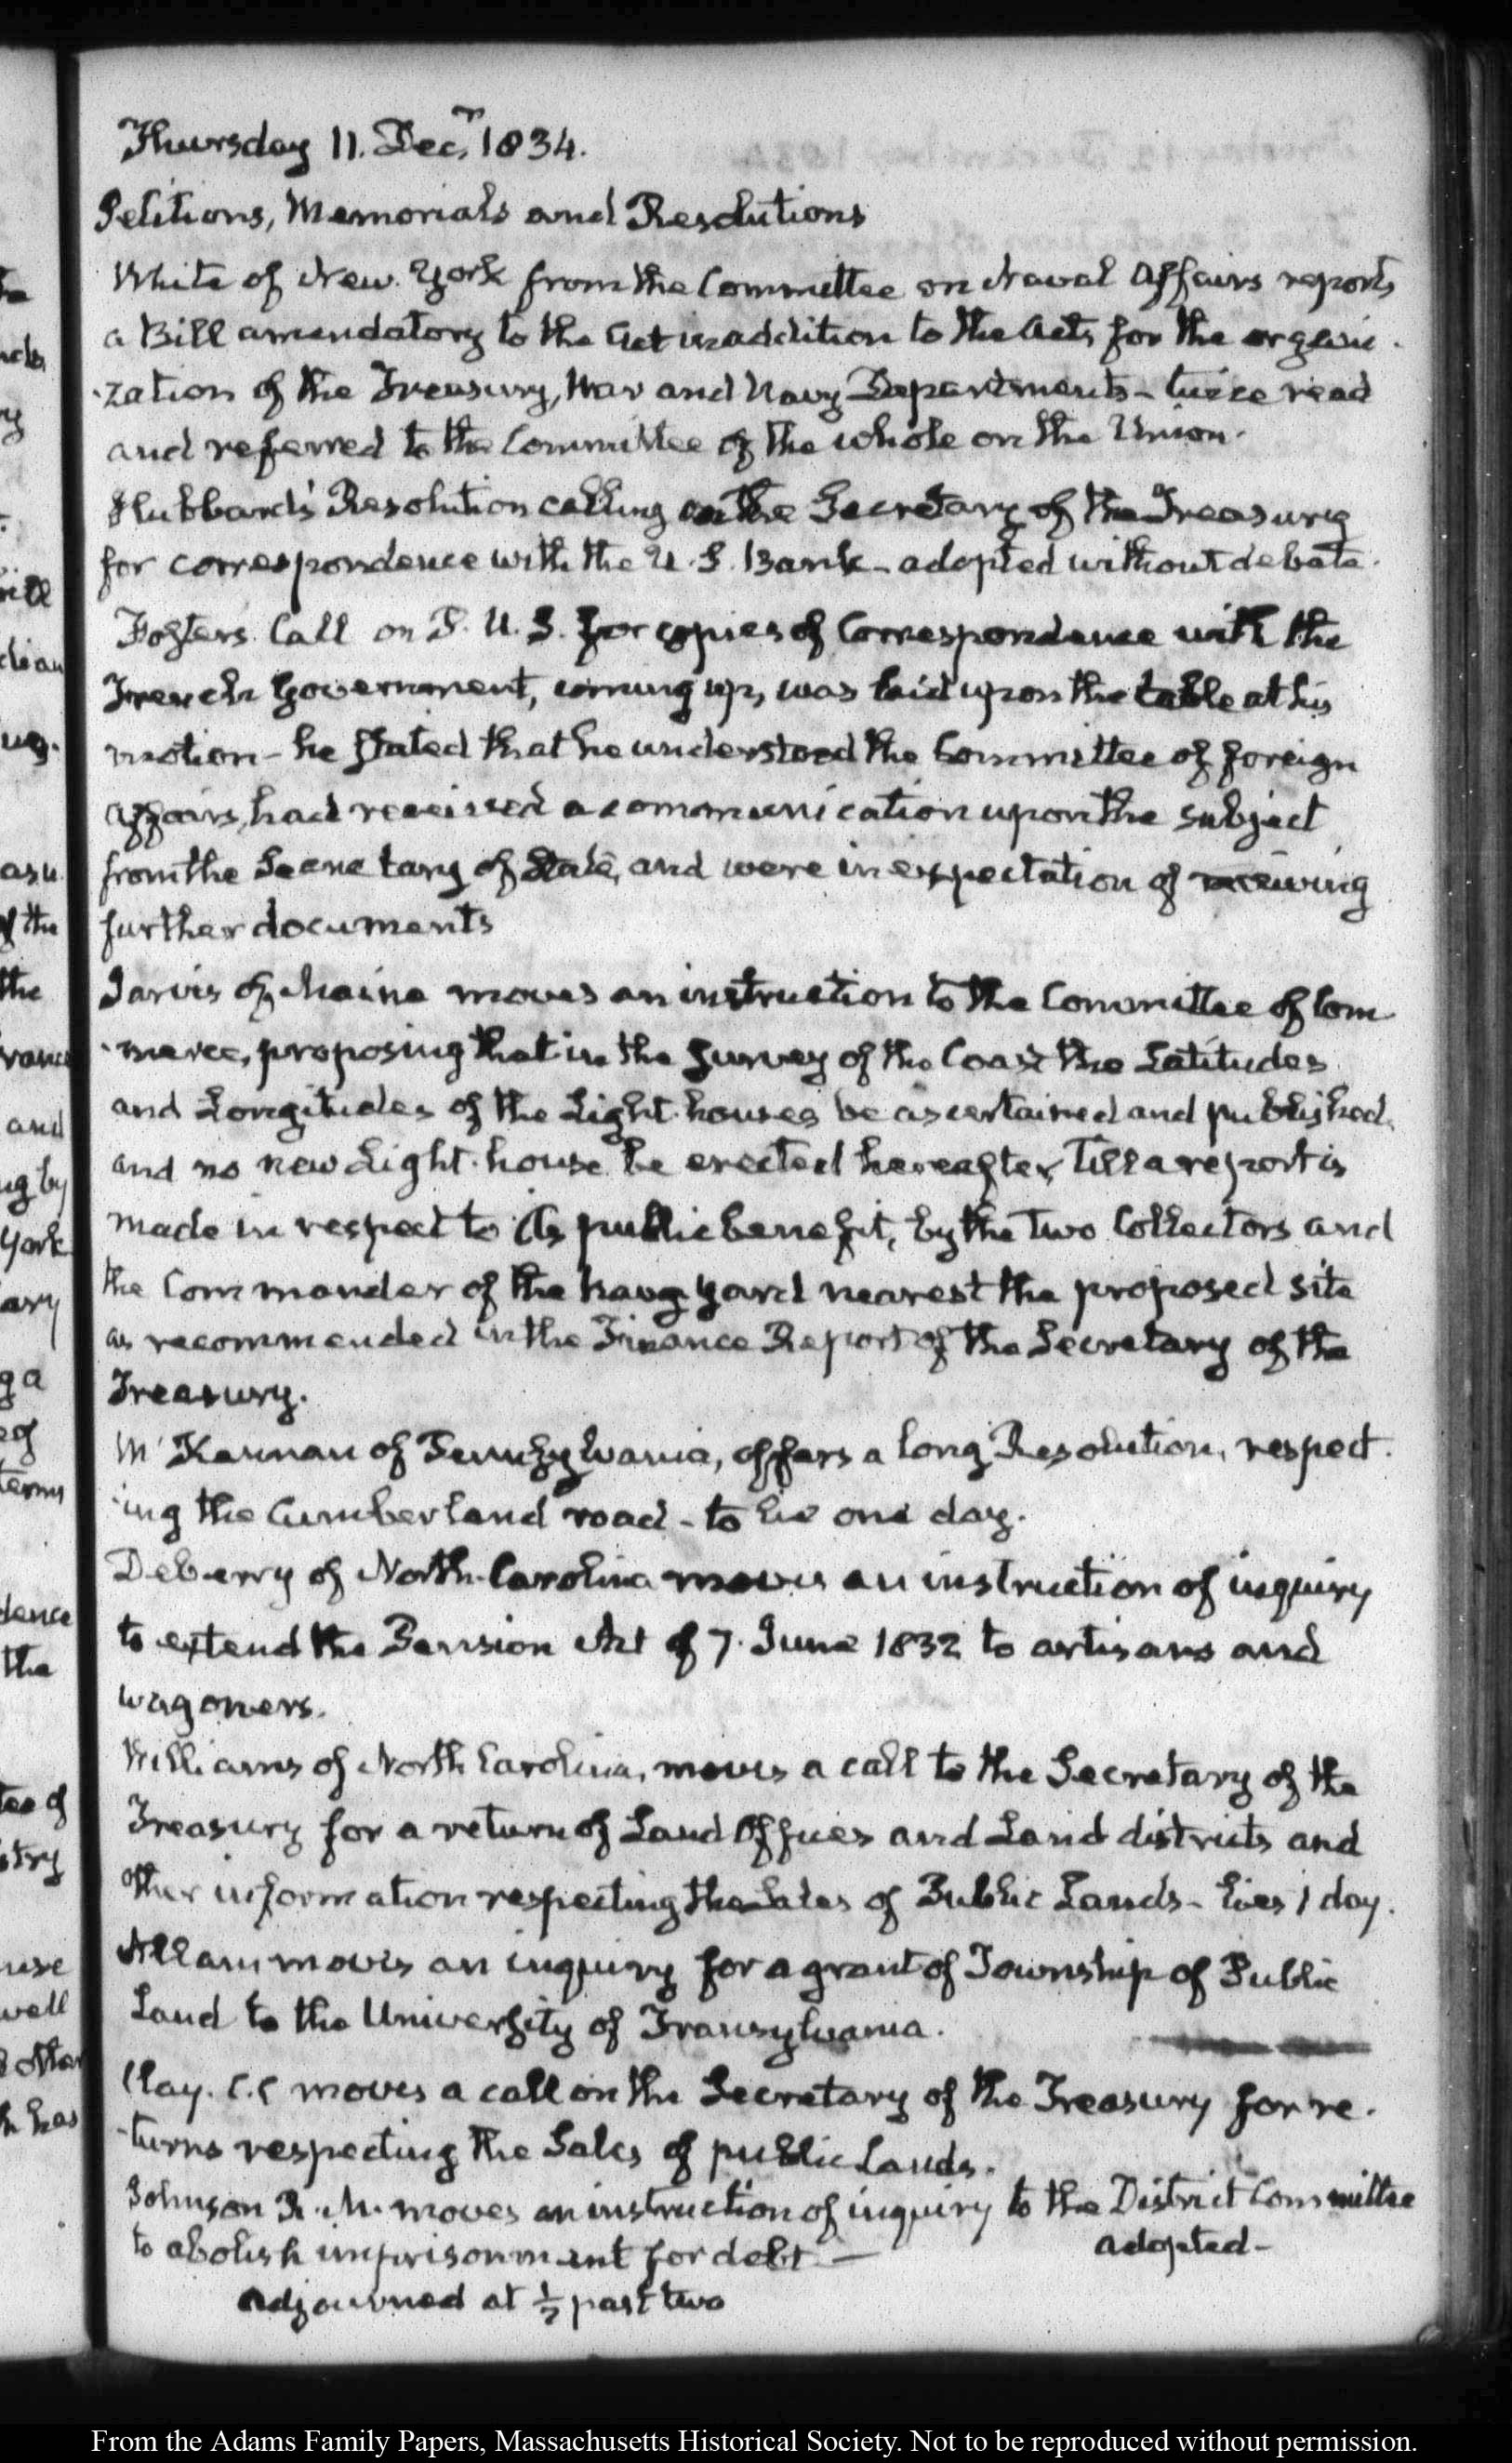 Thursday 11. Decr. 1834.
Petitions, Memorials and Resolutions
White of New York from the Committee on Naval Affairs reports
a Bill amendatory to the Act in addition to the Acts for the organi-
-zation of the Treasury, War and Navy Departments - twice read
and referred to the Committee of the whole on the Union.
Hubbard's Resolution calling on the Secretary of the Treasury
for correspondence with the U. S. Bank - adopted without debate.
Fosters Call on P. U. S. for copies of Correspondence with the
French Government, coming up, was laid upon the table at his
motion - he stated that he understood the Committee of foreign
affairs, had received a communication upon the subject
from the Secretary of State, and were in expectation of receiving
further documents
Jarvis of Maine moves an instruction to the Committee of Com
-merce, proposing that in the Survey of the Coast the Latitudes
and Longitudes of the Light-houses be ascertained and published,
and no new Light-house be erected hereafter, till a report is
made in respect to its public benefit, by the two Collectors and
the Commander of the Navy Yard nearest the proposed site
as recommended in the Finance Report of the Secretary of the
Treasury.
Mc Kennan of Pennsylvania, offers a long Resolution, respect-
-ing the Cumberland road - to lie one day.
Deberry of North-Carolina moves an instruction of inquiry
to extend the Pension Act of 7. June 1832 to artisans and
wagoners.
Williams of North Carolina, moves a call to the Secretary of the
Treasury for a return of Land Offices and Land districts and
other information respecting the Sales of Public Lands - lies 1 day.
Allan moves an inquiry for a grant of Township of Public
Land to the University of Transylvania.
Clay. C. C moves a call on the Secretary of the Treasury for re-
-turns respecting the Sales of public Lands.
Johnson R. M. moves an instruction of inquiry to the District Committee
to abolish imprisonment for debt — adopted -
Adjourned at ½ past two
From the Adams Family Papers, Massachusetts Historical Society. Not to be reproduced without permission.